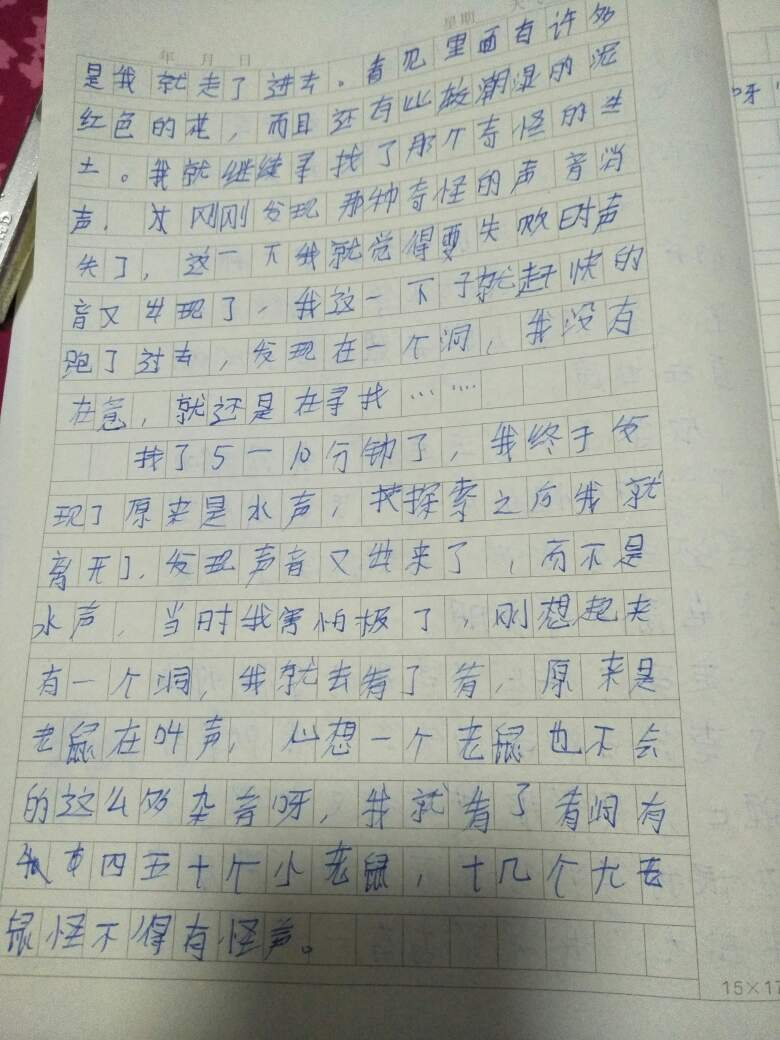 年 月 日 星期
是我就走了进去。看见里面有许多
红色的花，而且还有些故潮湿的泥
土。我就继续寻找了那个奇怪的生
声，才刚刚发现那种奇怪的声音消
失了，这一下我就觉得要失败时声
音又出现了，我这一下子就赶快的
跑了过去，发现在一个洞，我没有
在意，就还是在寻找……
找了5一10分钟了，我终于发
现了原来是水声，找探索之后我就
离开了，发现声音又出来了，而不是
水声，当时我害怕极了，刚想起来
有一个洞，我就去看了看，原来是
老鼠在叫声，心想一个老鼠也不会
的这么多杂音呀，我就看了看洞有
四五十个小老鼠，十几个大老
鼠怪不得有怪声。
呀
15×17